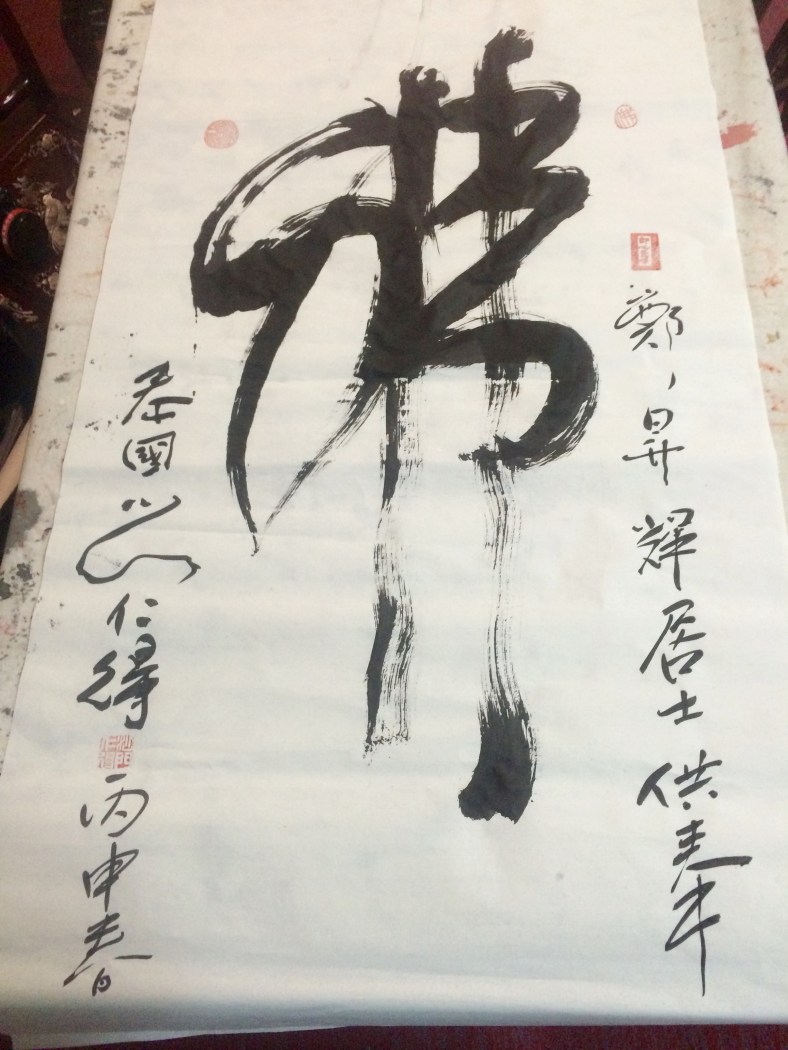 鄭昇輝居士供奉
佛
泰國仁得
丙申春